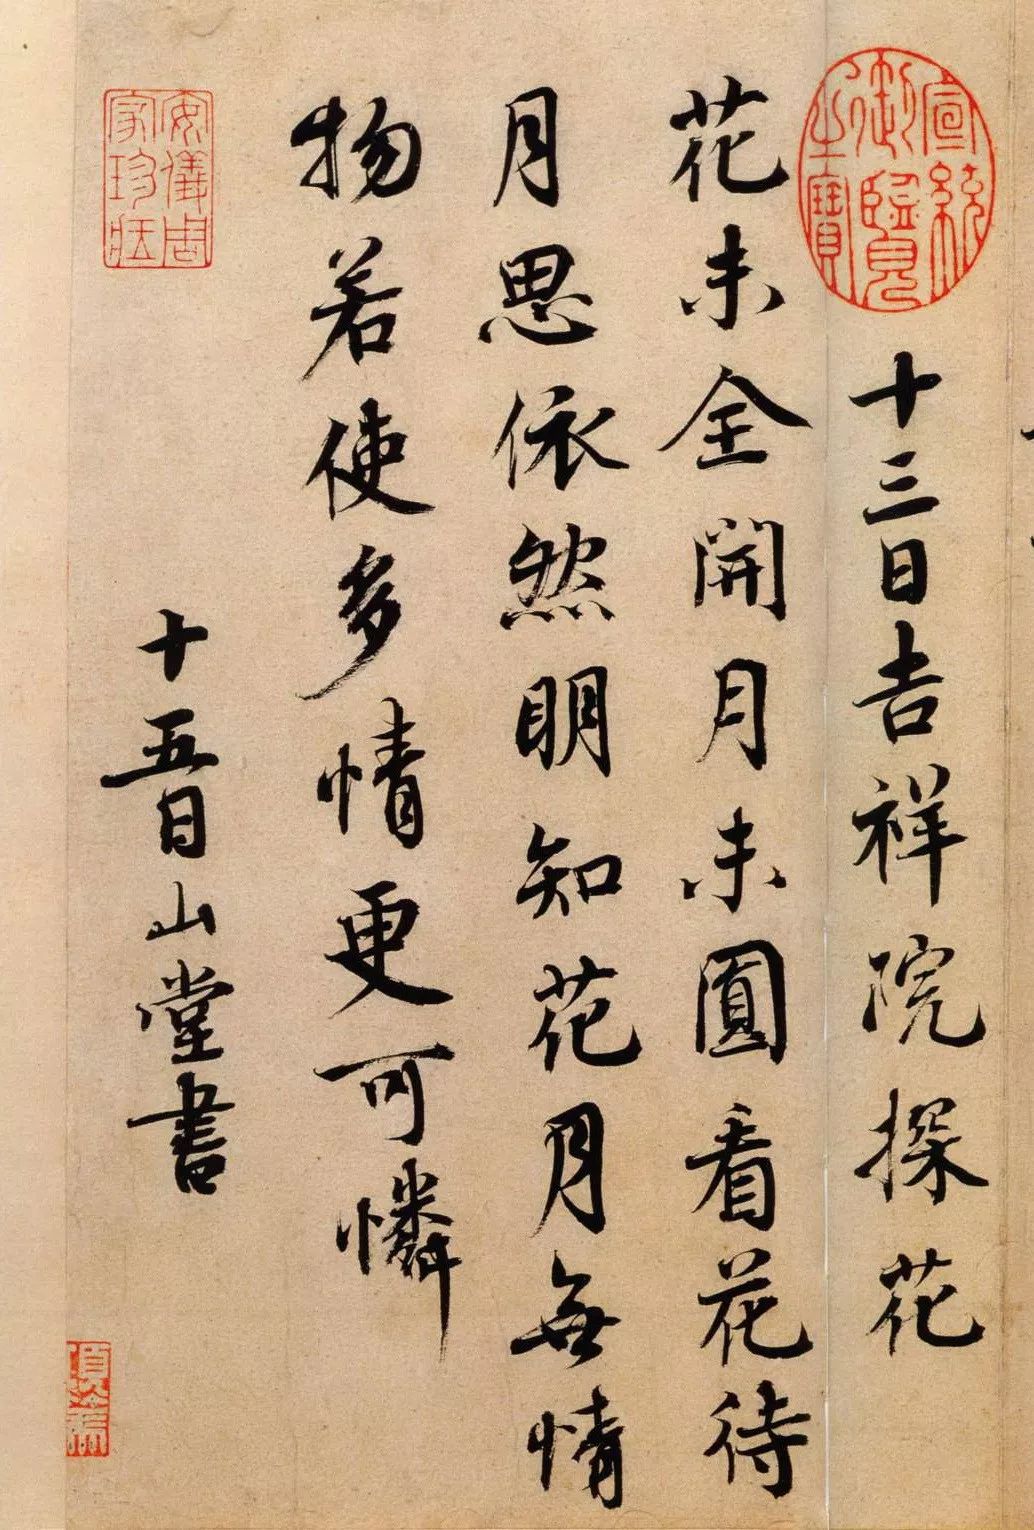 宣統御覽之寶
十三日吉祥院探花
花未全開月未圓看花待
月思依然明知花月無情
物若使多情更可憐
十五日山堂書
安儀周家珍藏